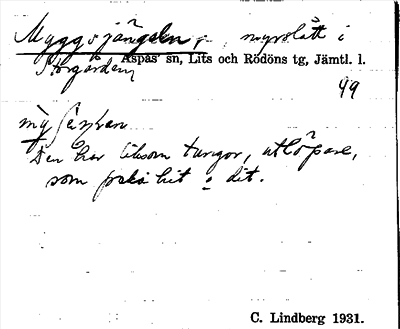 Myggsjängeln, myrslått i
Storgården,
Aspås sn, Lits och Rödöns tg, Jämtl. l.
49
Den har liksom tungor, utlöpare,
som peka hit o dit.
C. Lindberg 1931.